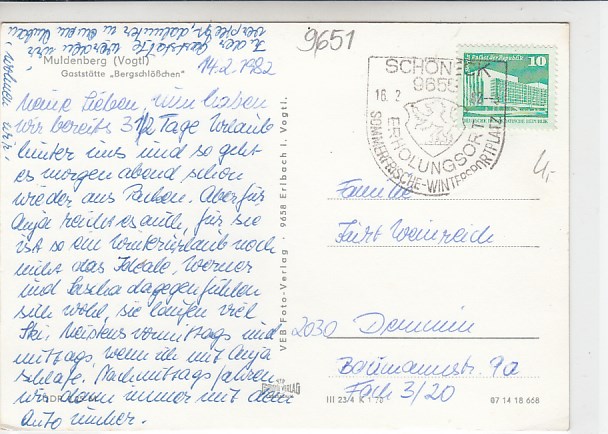 In der Gaststätte werden wir
verpflegt, darunter u.
wohnen wir.
9651
Muldenberg (Vogtl)
Gaststätte „Bergschlößchen"
14.2.1982
Meine Lieben, nun haben
wir bereits 3 1/2 Tage Urlaub
hinter uns und so geht
es morgen abend schon
wieder aus Farben. Aber für
Anja reicht es auch, für sie
ist so ein Winterurlaub noch
nicht das Ideale. Werner
und Sascha dagegen fühlen
sich wohl, sie laufen viel
Ski. Meistens vormittags und
mittags, wenn ich mit Anja
schlafe. Nachmittags fahren
wir dann immer mit dem
Auto umher.
VEB Foto-Verlag · 9658 Erlbach i. Vogtl.
SCHÖNECK
9655
16. 2
ERHOLUNGSORT
SOMMERFRISCHE-WINTERSPORTPLATZ
Palast der Republik
10
DEUTSCHE DEMOKRATISCHE REPUBLIK
4,-
Familie
Fürst Weinreich
2030 Demmin
Baumannstr. 9a
Fach 3/20
III 23/4 K 1 70
07 14 18 668